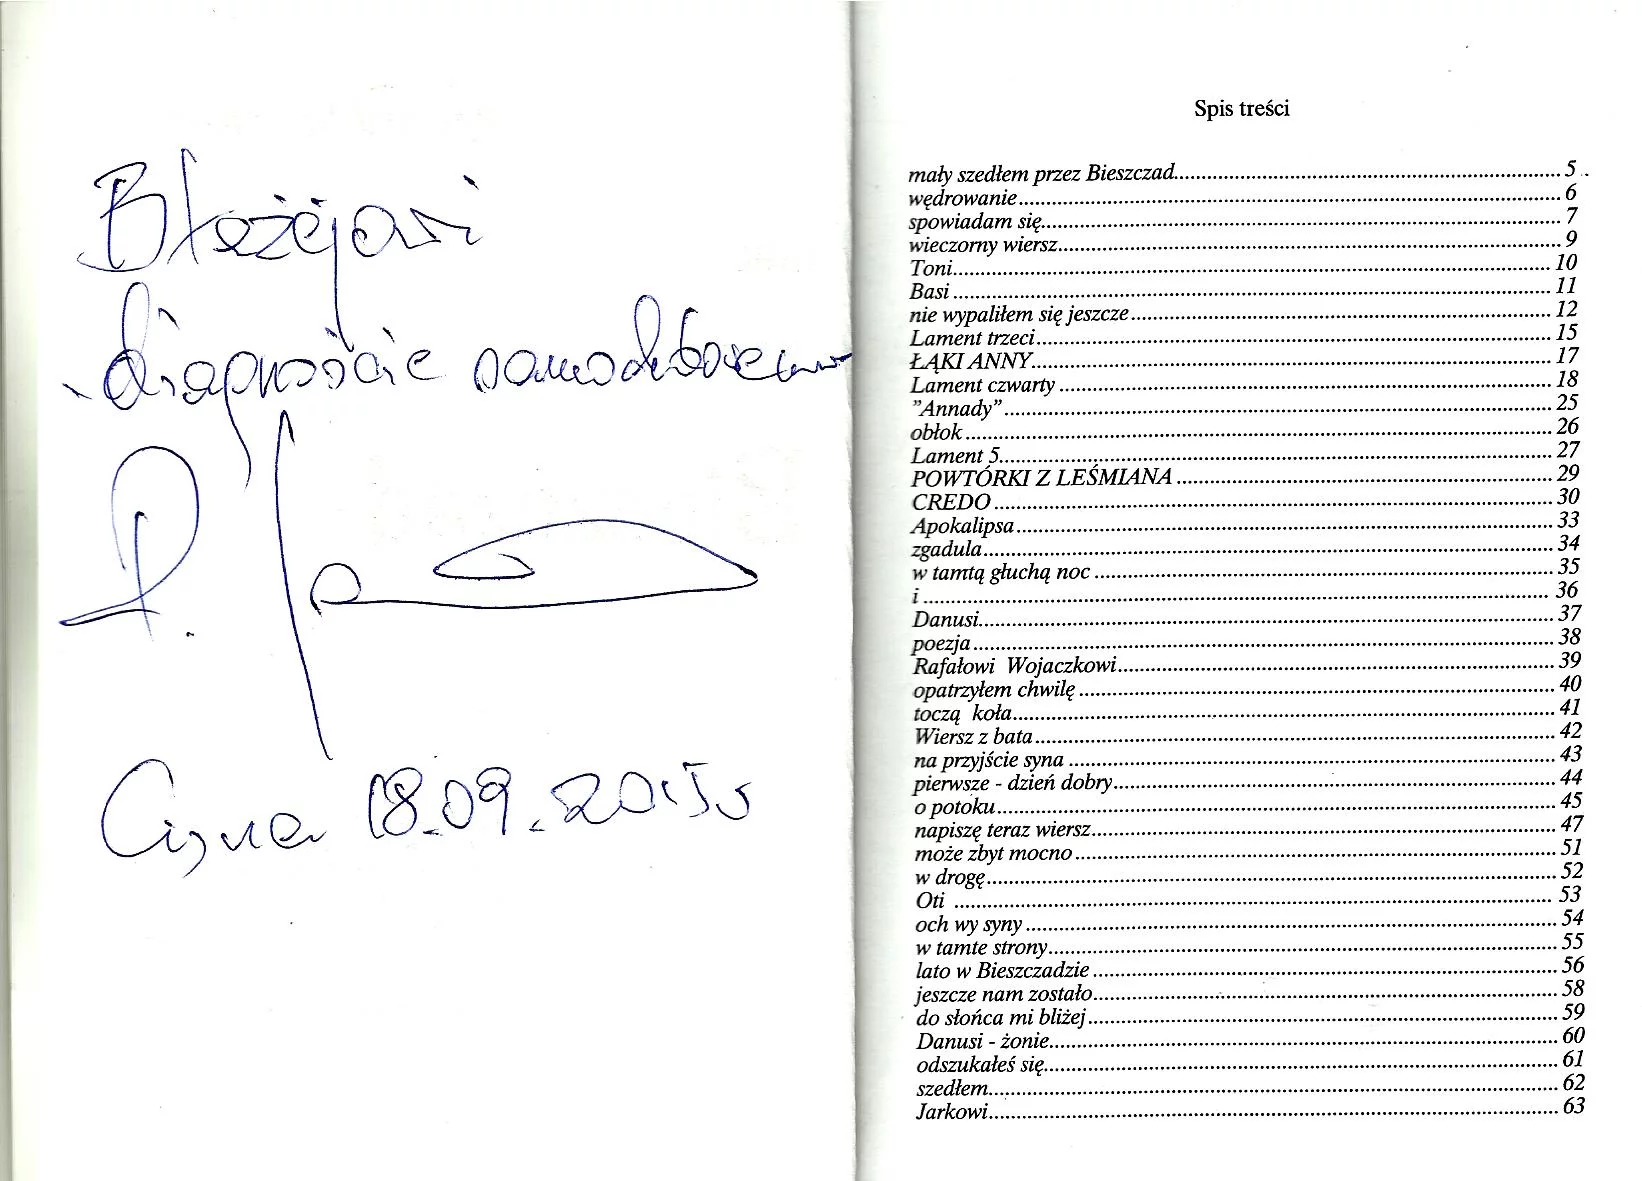 Błażejowi
diagnoście
Cisna 18.09.2015
Spis treści
mały szedłem przez Bieszczad.......... 5
wędrowanie.......... 6
spowiadam się.......... 7
wieczorny wiersz.......... 9
Toni.......... 10
Basi.......... 11
nie wypaliłem się jeszcze.......... 12
Lament trzeci.......... 15
ŁĄKI ANNY.......... 17
Lament czwarty.......... 18
”Annady”.......... 25
obłok.......... 26
Lament 5.......... 27
POWTÓRKI Z LEŚMIANA.......... 29
CREDO.......... 30
Apokalipsa.......... 33
zgadula.......... 34
w tamtą głuchą noc.......... 35
i.......... 36
Danusi.......... 37
poezja.......... 38
Rafałowi Wojaczkowi.......... 39
opatrzyłem chwilę.......... 40
toczą koła.......... 41
Wiersz z bata.......... 42
na przyjście syna.......... 43
pierwsze - dzień dobry.......... 44
o potoku.......... 45
napiszę teraz wiersz.......... 47
może zbyt mocno.......... 51
w drogę.......... 52
Oti.......... 53
och wy syny.......... 54
w tamte strony.......... 55
lato w Bieszczadzie.......... 56
jeszcze nam zostało.......... 58
do słońca mi bliżej.......... 59
Danusi - żonie.......... 60
odszukałeś się.......... 61
szedłem.......... 62
Jarkowi.......... 63